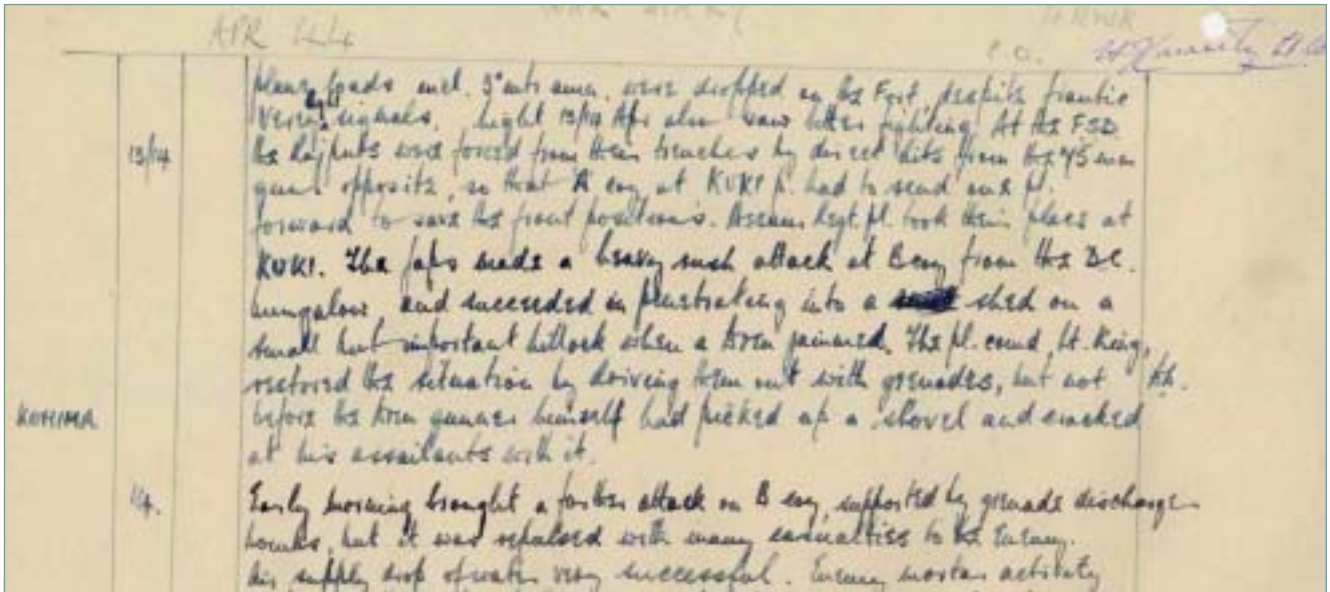 WAR DIARY
APR 44
C.O.
plane loads incl. 3" mtr ammn. were dropped on the Fort, despite frantic
Very light signals. Night 13/14 Apr also saw bitter fighting. At the FSD
13/14 the Rajputs were forced from their trenches by direct hits from the 75 mm
guns opposite, so that A coy at KUKI P. had to send one pl.
forward to save the front positions. Assam Regt. pl. took their place at
KUKI. The Japs made a heavy rush attack at B coy from the DC.
bungalow, and succeeded in penetrating into a shed on a
small but important hillock when a bren jammed. The pl. comd, Lt. King,
restored the situation by driving them out with grenades, but not
KOHIMA before the bren gunner himself had picked up a shovel and cracked
at his assailants with it.
14. Early morning brought a further attack on B coy, supported by grenade discharger
bombs, but it was repulsed with many casualties to the Enemy.
Air supply drop of water very successful. Enemy mortar activity